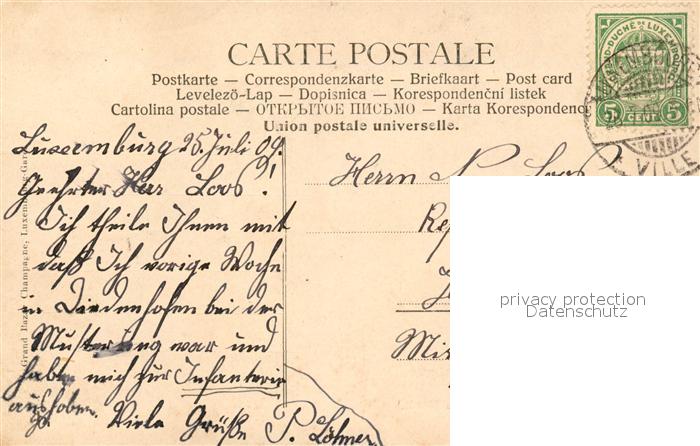 CARTE POSTALE
Postkarte — Correspondenzkarte — Briefkaart — Post card
Levelező-Lap — Dopisnica — Korespondenční listek
Cartolina postale — ОТКРЫТОЕ ПИСЬМО — Karta Korespondenc
Union postale universelle.
GRAND-DUCHÉ DE LUXEMBOURG
5 CENT 5
VILLE
Grand Bazar Champagne, Luxembourg-Gare
Luxemburg 25. Juli 09.
Geehrter Herr Loos!
Ich theile Ihnen mit
daß Ich vorige Woche
in Diedenhofen bei der
Musterung war und
haben mich zur Infanterie
aushoben.
Viele Grüße P. Löhmer
Herrn N. Loos
privacy protection
Datenschutz